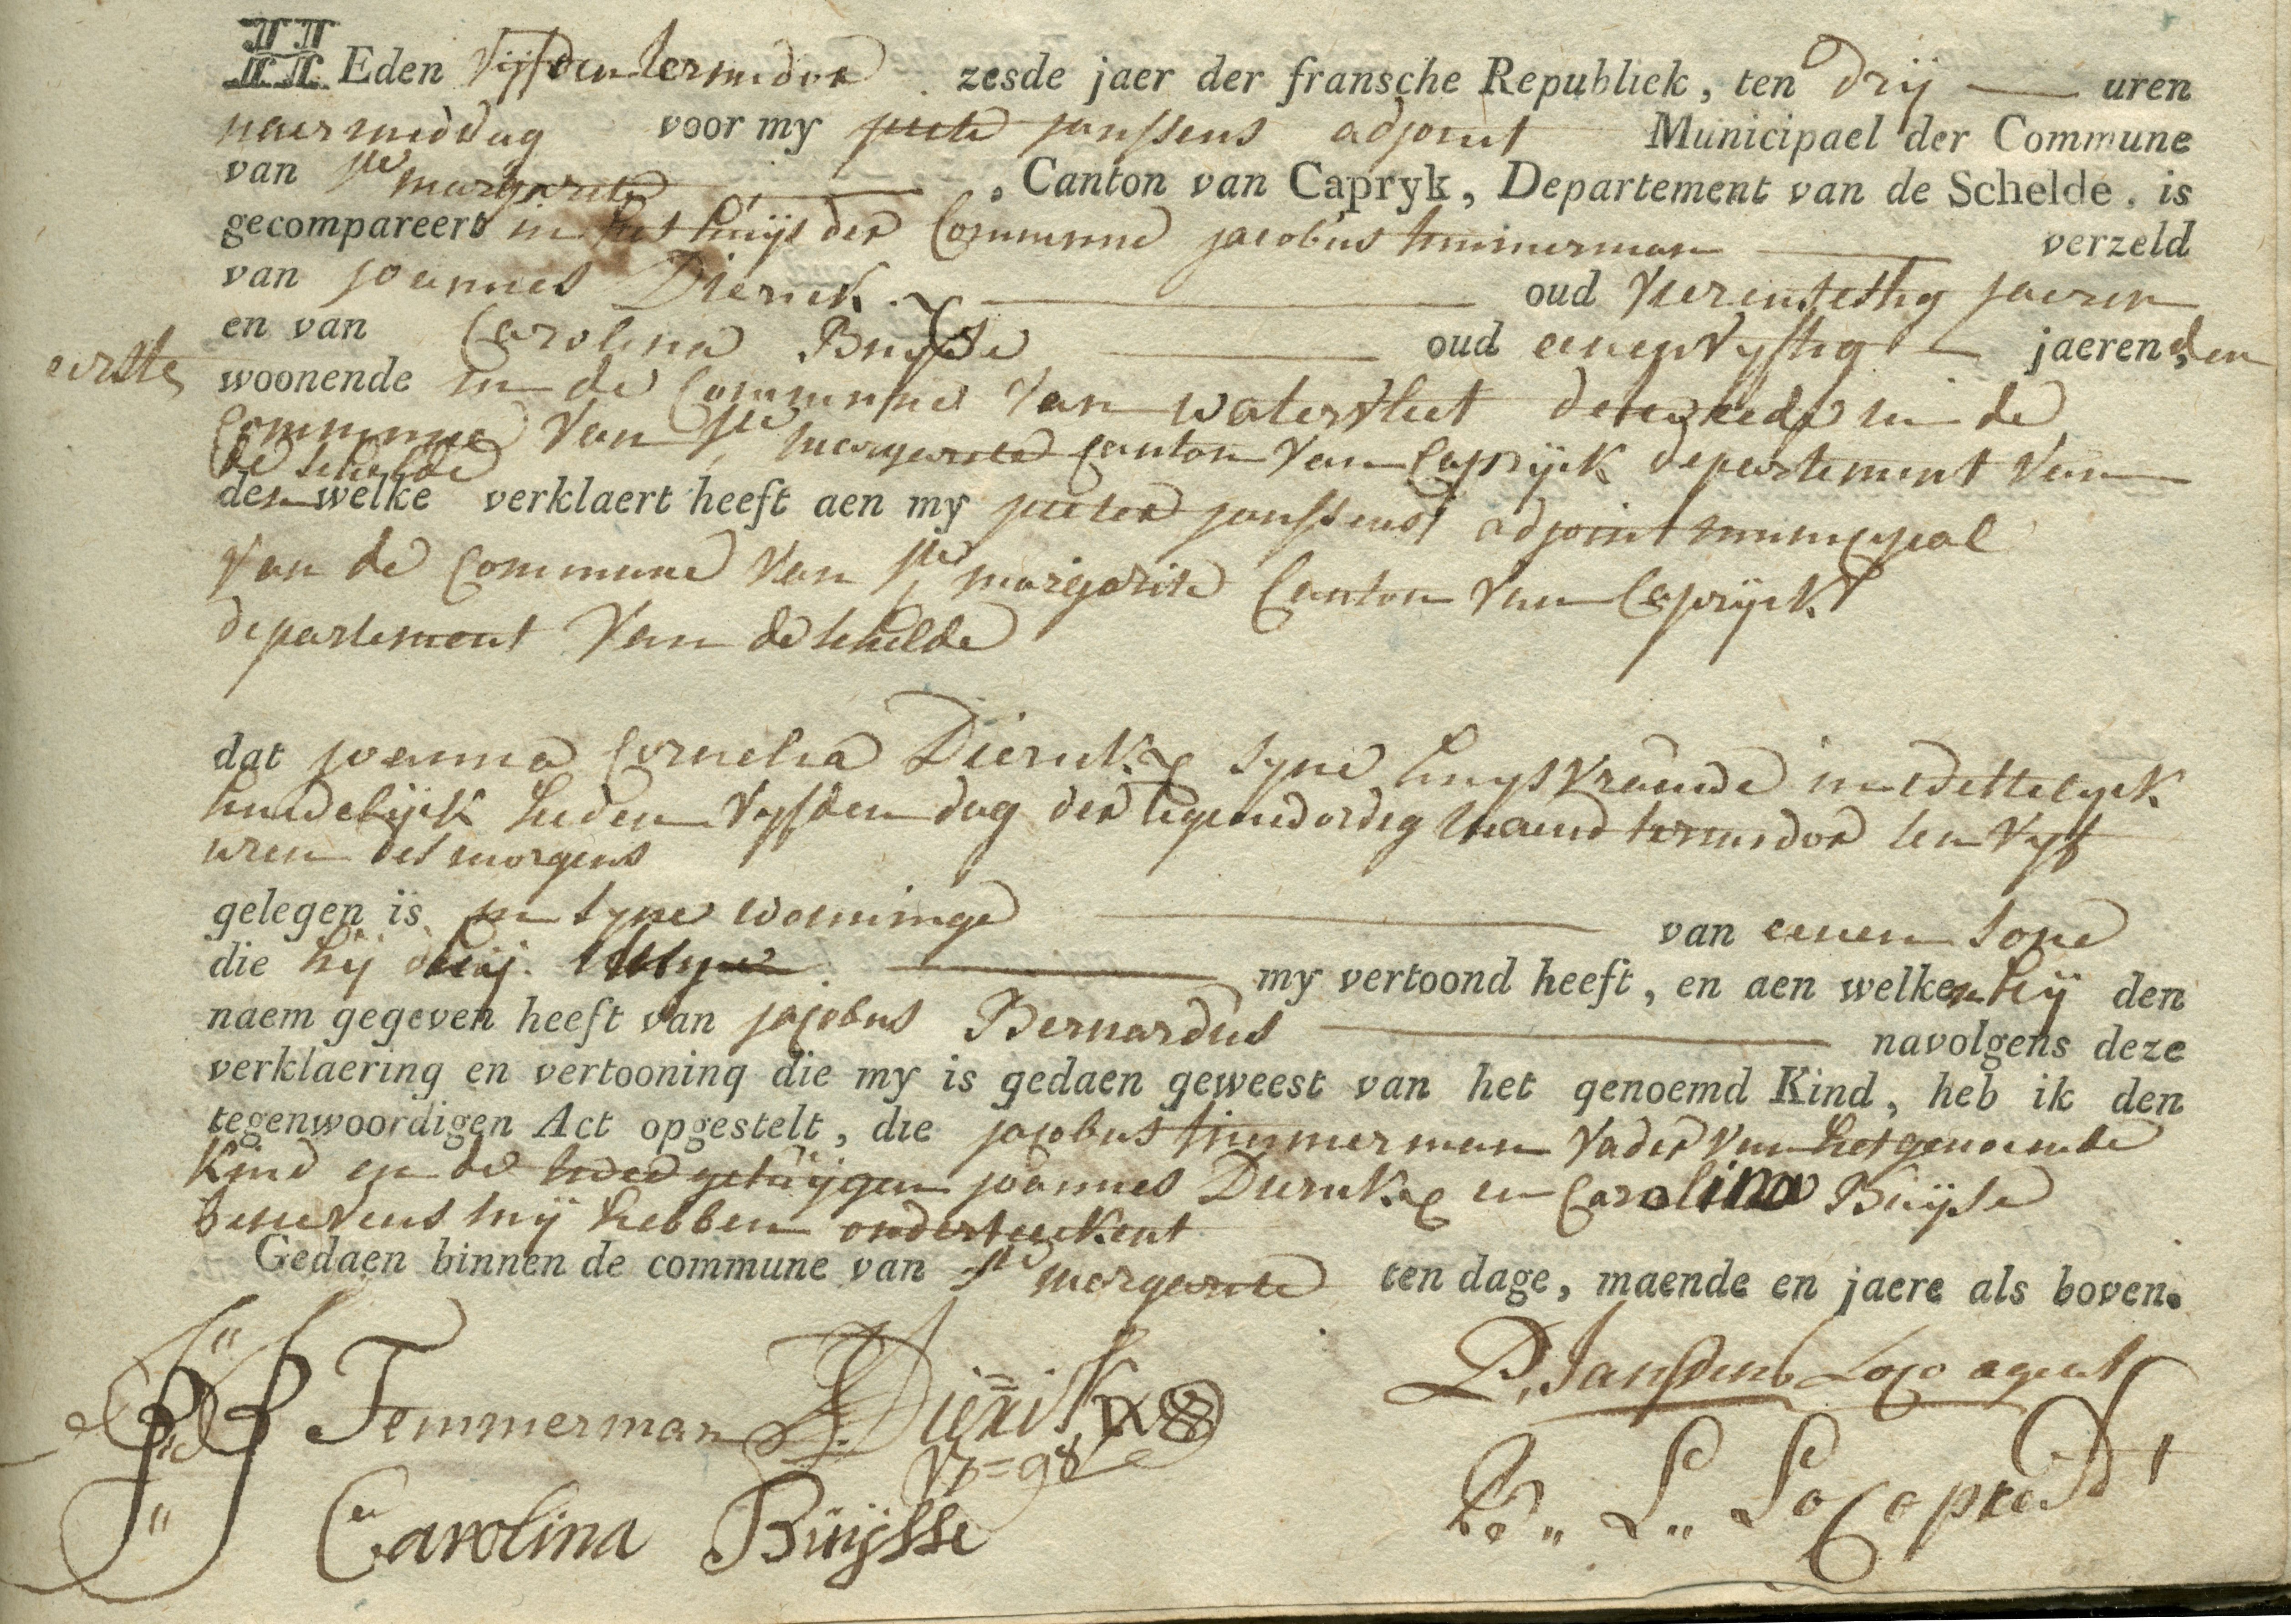 HEden Vijfden termidor zesde jaer der fransche Republiek, ten drij uren
naermiddag voor my pieter janssens adjoint Municipael der Commune
van Ste margarite, Canton van Capryk, Departement van de Schelde, is
gecompareert in het huijs der Commune jacobus timmerman verzeld
van joannes Dierick x oud vierentestig jaeren
en van Carolina Buijse oud eenenvyftig jaeren, den
eerste woonende in de Commune van watervliet de tweede in de
Commune van Ste margarite canton van Caprijck departement van
de schelde
den welke verklaert heeft aen my pieter janssens adjoint municipal
van de Commune van Ste margarite Canton van Caprijck
departement van de schelde
dat joanna Cornelia Dierickx syne huysvrauwe in wettelyck
huwelijck heden vyfden dag der tegenwordig maend termidor ten vyf
uren des morgens
gelegen is in syne woninge van eenen sone
die hij my vertoond heeft, en aen welken hij den
naem gegeven heeft van jacobus Bernardus navolgens deze
verklaering en vertooning die my is gedaen geweest van het genoemd Kind, heb ik den
tegenwoordigen Act opgestelt, die jacobus timmerman vader van het genoemde
kind en de twee getuijgen joannes Dierickx en Carolina Buijse
benevens mij hebben onderteeckent
Gedaen binnen de commune van Ste margarite ten dage, maende en jaere als boven.
Temmerman J. Dierickx P. Janssens Loco agent
Carolina Buijsse